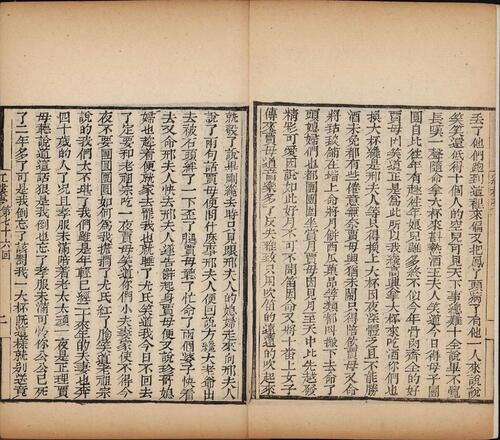 丟了他們跑到這裡來偏又把鳳丫頭病了有他一人來說說
笑笑還低得十個人的空兒可見天下事總難十全說畢不覺
長嘆一聲隨命拿大杯來斟熱酒王夫人笑道今日得母子團
圓自比往年有趣往年娘兒們雖多終不似今年骨肉齊全的好
賈母因笑道正是為此所以我纔高興拿大杯來吃酒你們也
換大杯纔是邢夫人等只得換上大杯因夜深體乏且不能勝
酒未免都有些倦意無奈賈母興猶未闌只得陪飲賈母又命
將毡毯鋪在堦上命將月餅西瓜菓品等類都叫搬下去命丫
頭媳婦們也都團團圍坐賞月賈母因見月至天中比先越發
精彩可愛因說如此好月不可不聞笛因命又將十番上女子
傳來賈母道音樂多了反失雅致只用吹笛的遠遠的吹起來
就彀了說畢剛纔去時只見跟邢夫人的媳婦走來向邢夫人
說了兩句話賈母便問什麼事邢夫人便回說方纔大老爺出
去被石頭絆了一下歪了腿賈母聽了忙命了兩個婆子快看
去又命邢夫人快去邢夫人遂告辭起身賈母便又說珍哥媳
婦也趁着便就家去罷我也就睡了尤氏笑道我今日不回去
了定要和老祖宗吃一夜賈母笑道你們小夫妻家使不得今
夜不要團圓團圓如何為我擔擱了尤氏紅了臉笑道老祖宗
說的我們太不堪了我們雖是年輕已經二十來年的夫妻也奔
四十歲的人了况且孝服未滿陪着老太太頑一夜是正理賈
母聽說笑道這話狠是我倒忘了孝服未滿可憐你公公已死
了二年多了可是我倒忘了該罰我一大杯既這樣就別送竟
紅樓夢 第七十六回 二